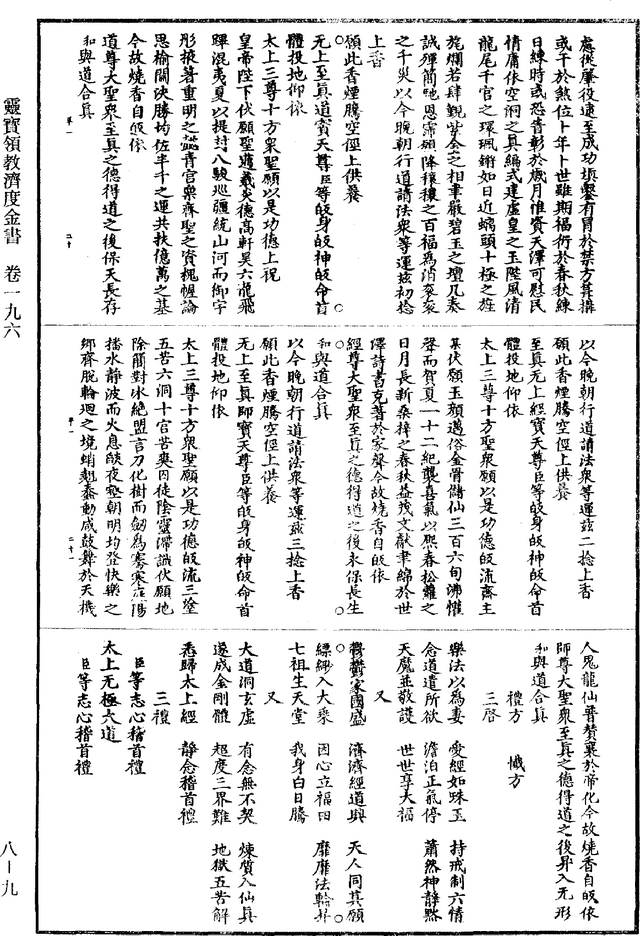 靈寶領教濟度金書　卷一九六
處從肇役遠至成功填鑿有冐於禁方葺搆
或干於煞位卜年卜世雖期福衍於春秋練
日練時或恐眚彰於歲月惟資天澤可慰民
情膚依空洞之真編式建虛皇之玉陛風清
龍尾千官之環珮鏘如日近螭頭十極之旌
旄爛若肆覲紫金之相聿嚴碧玉之壇几奏
誠殫簡虵恩霈頒降穰穰之百福爲消袞袞
之千災以今晚朝行道請法衆等運茲初捻
上香
願此香煙騰空徑上供養
无上至真道寶天尊臣等皈身皈神皈命首
體投地仰依
太上三尊十方衆聖願以是功德上祝
皇帝陛下伏願聖邁羲炎德高軒昊六龍飛
蹕混夷夏以提封八駿巡疆統山河而御宇
彤掖著重明之懿青宮樂齊聖之資槐幄論
思榆關決勝均佐半千之運共扶億萬之基
今故燒香自皈依
道尊大聖衆至真之德得道之後保天長存
和與道合真
以今晚朝行道請法衆等運茲二捻上香
願此香煙騰空徑上供養
至真无上經寶天尊臣等皈身皈神皈命首
體投地仰依
太上三尊十方聖衆願以是功德皈流齋主
某伏願玉顏邁俗金骨儲仙三百六旬沸懽
聲而賀夏一十二紀襲喜氣以熙春松蘿之
日月長新桑梓之春秋益茂文獻聿綿於世
澤詩書克著於家聲今故燒香自皈依
經尊大聖衆至真之德得道之後永保長生
和與道合真
以今晚朝行道請法衆等運茲三捻上香
願此香煙騰空徑上供養
无上至真師寶天尊臣等皈身皈神皈命首
體投地仰依
太上三尊十方衆聖願以是功德皈流三塗
五苦六洞十宮苦爽囚徒陰靈滯識伏願地
除簡對氷絕盟言刀化樹而劒爲騫寒庭陽
播水静波而火息皷夜壑朝明均登快樂之
鄉齊脫輪迴之境蛸翹蠢動咸鼓舞於天機
人鬼龍仙普賛襄於帝化今故燒香自皈依
師尊大聖衆至真之德得道之後昇入无形
和與道合真
禮方　懴方
三啓
樂法以爲妻　愛經如珠玉　持戒制六情
念道遣所欲　澹泊正氣停　蕭然神静默
天魔並敬護　世世享大福
又
欝欝家國盛　濟濟經道興　天人同其願
縹緲入大乘　因心立福田　靡靡法輪昇
七祖生天堂　我身白日騰
又
大道洞玄虛　有念無不契　煉質入仙真
遂成金剛體　超度三界難　地獄五苦解
悉歸太上經　静念稽首禮
三禮
臣等志心稽首禮
太上无極大道
臣等志心稽首禮
八－九